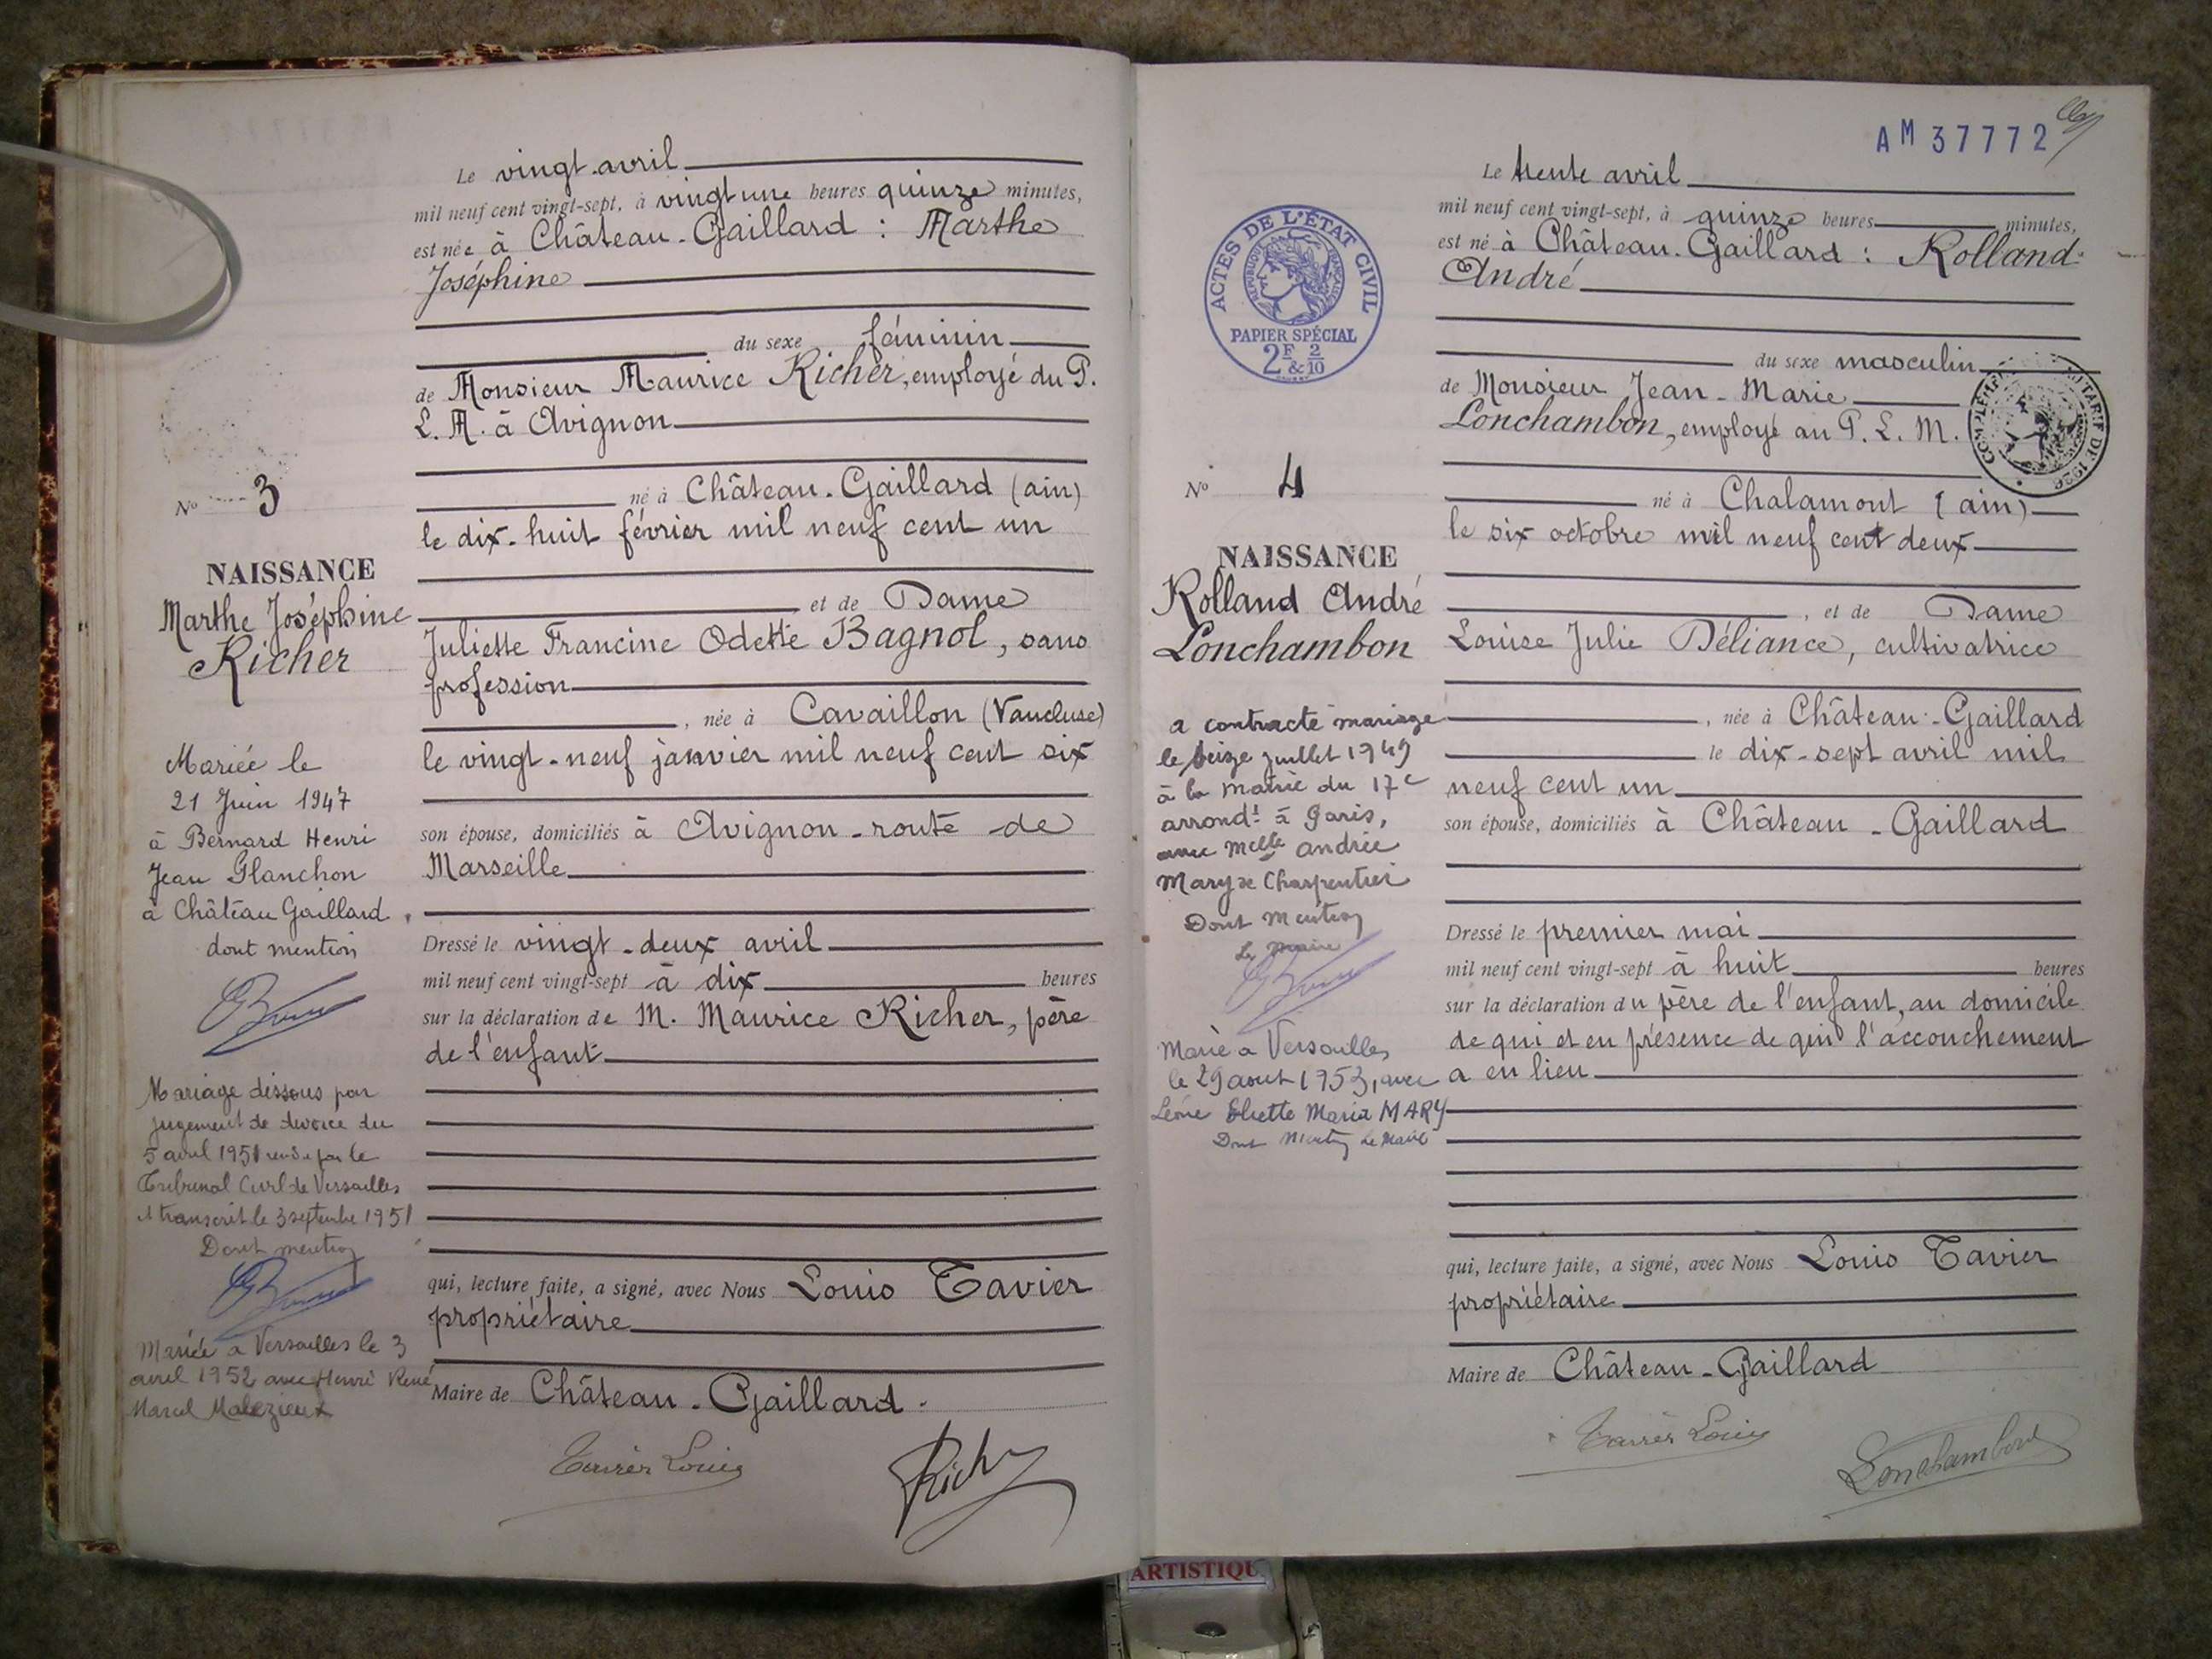 Le vingt-avril
mil neuf cent vingt-sept, à vingt une heures quinze minutes,
est née à Château-Gaillard : Marthe
Joséphine
du sexe féminin
de Monsieur Maurice Richer, employé du P.
L. M. à Avignon
né à Château-Gaillard (ain)
le dix-huit février mil neuf cent un
et de Dame
Juliette Francine Odette Bagnol, sans
profession
, née à Cavaillon (Vaucluse)
le vingt-neuf janvier mil neuf cent six
son épouse, domiciliés à Avignon-route de
Marseille
Dressé le vingt-deux avril
mil neuf cent vingt-sept à dix heures
sur la déclaration de M. Maurice Richer, père
de l'enfant
qui, lecture faite, a signé, avec Nous Louis Tavier
propriétaire
Maire de Château-Gaillard.
Tavier Louis
Richer
No 3
NAISSANCE
Marthe Joséphine
Richer
Mariée le
21 Juin 1947
à Bernard Henri
Jean Planchon
à Château Gaillard.
dont mention
Mariage dissous par
jugement de divorce du
5 avril 1951 rendu par le
Tribunal Civil de Versailles
et transcrit le 3 septembre 1951
Dont mention
Mariée à Versailles le 3
avril 1952 avec Henri René
Marcel Malezieux
AM 37772
Le trente avril
mil neuf cent vingt-sept, à quinze heures minutes,
est né à Château-Gaillard : Rolland
André
du sexe masculin
de Monsieur Jean-Marie
Lonchambon, employé au P. L. M.
né à Chalamont (ain)
le six octobre mil neuf cent deux
, et de Dame
Louise Julie Déliance, cultivatrice
, née à Château-Gaillard
le dix-sept avril mil
neuf cent un
son épouse, domiciliés à Château-Gaillard
Dressé le premier mai
mil neuf cent vingt-sept à huit heures
sur la déclaration du père de l'enfant, au domicile
de qui et en présence de qui l'accouchement
a eu lieu
qui, lecture faite, a signé, avec Nous Louis Tavier
propriétaire
Maire de Château-Gaillard
Tavier Louis
Lonchambon
ACTES DE L'ÉTAT CIVIL
RÉPUBLIQUE FRANÇAISE
PAPIER SPÉCIAL
2F & 2/10
TARIF DE
No 4
NAISSANCE
Rolland André
Lonchambon
a contracté mariage
le seize juillet 1949
à la mairie du 17e
arrondt à Paris,
avec Melle andrée
Maryse Charpentier
Dont mention
Le Maire
Marié à Versailles
le 29 aout 1953, avec
Léone Eliette Maria MARY
Dont Mention Le Maire
ARTISTIQU